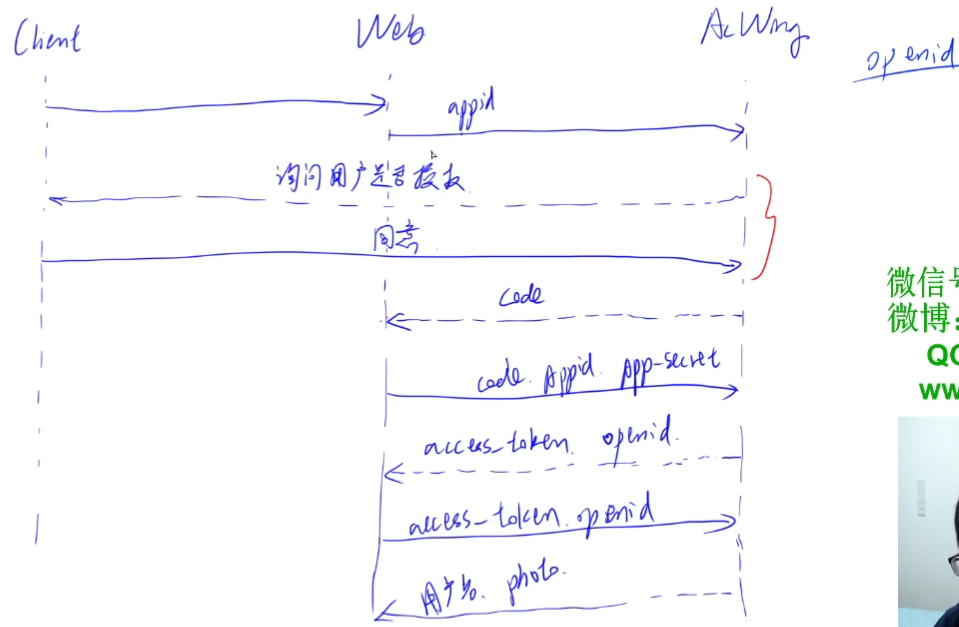 Client Web AcWing
openid
appid
询问用户是否授权
同意
code
code. Appid. App-secret
access-token. openid.
access-token. openid
用户名. photo.
微信号
微博:
QQ
ww